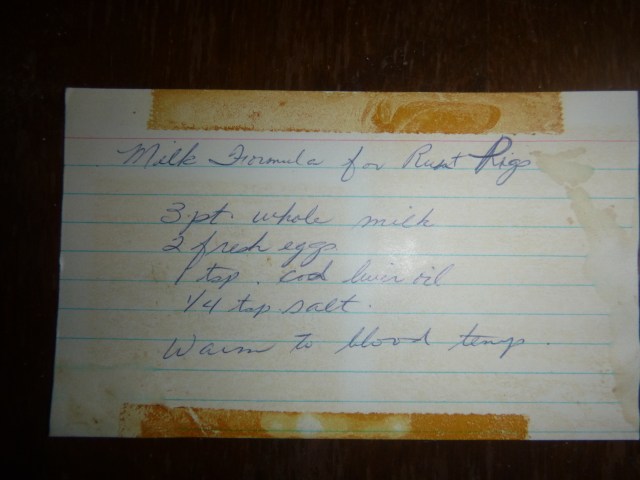 Milk Formula for Runt Pigs
3 pt. whole milk
2 fresh eggs
1 tsp. cod liver oil
1/4 tsp salt.
Warm to blood temp.